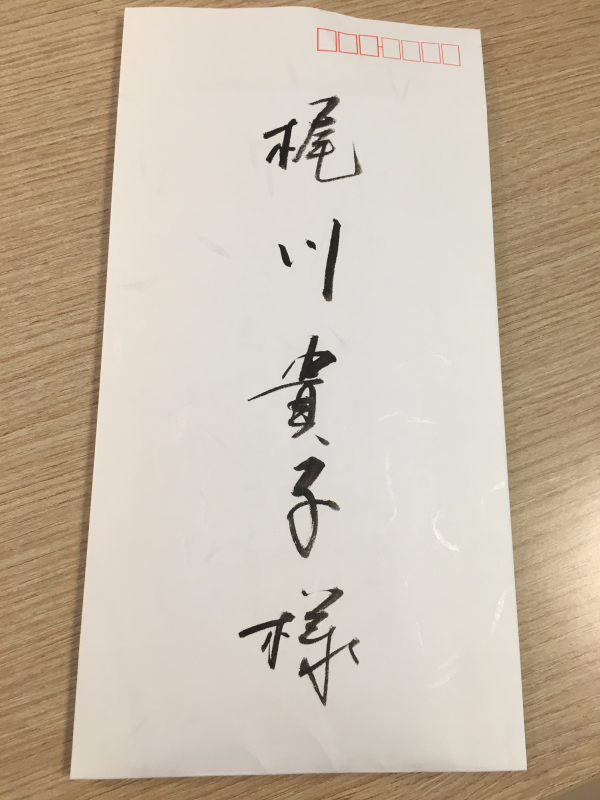 梶川貴子様